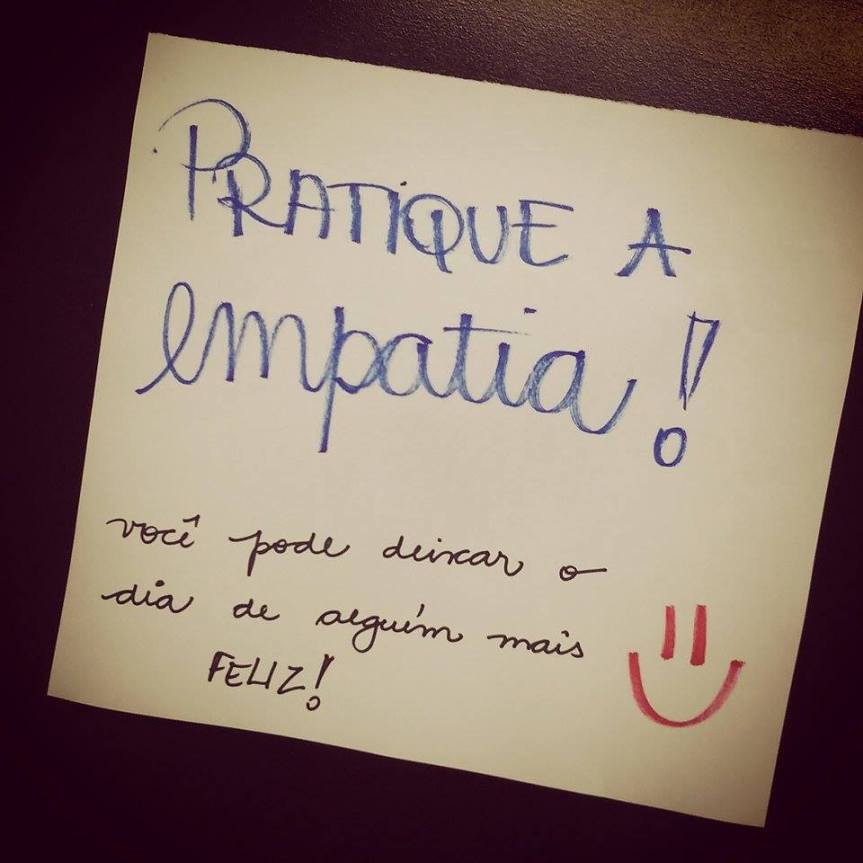 PRATIQUE A
empatia!
você pode deixar o
dia de alguém mais
FELIZ!